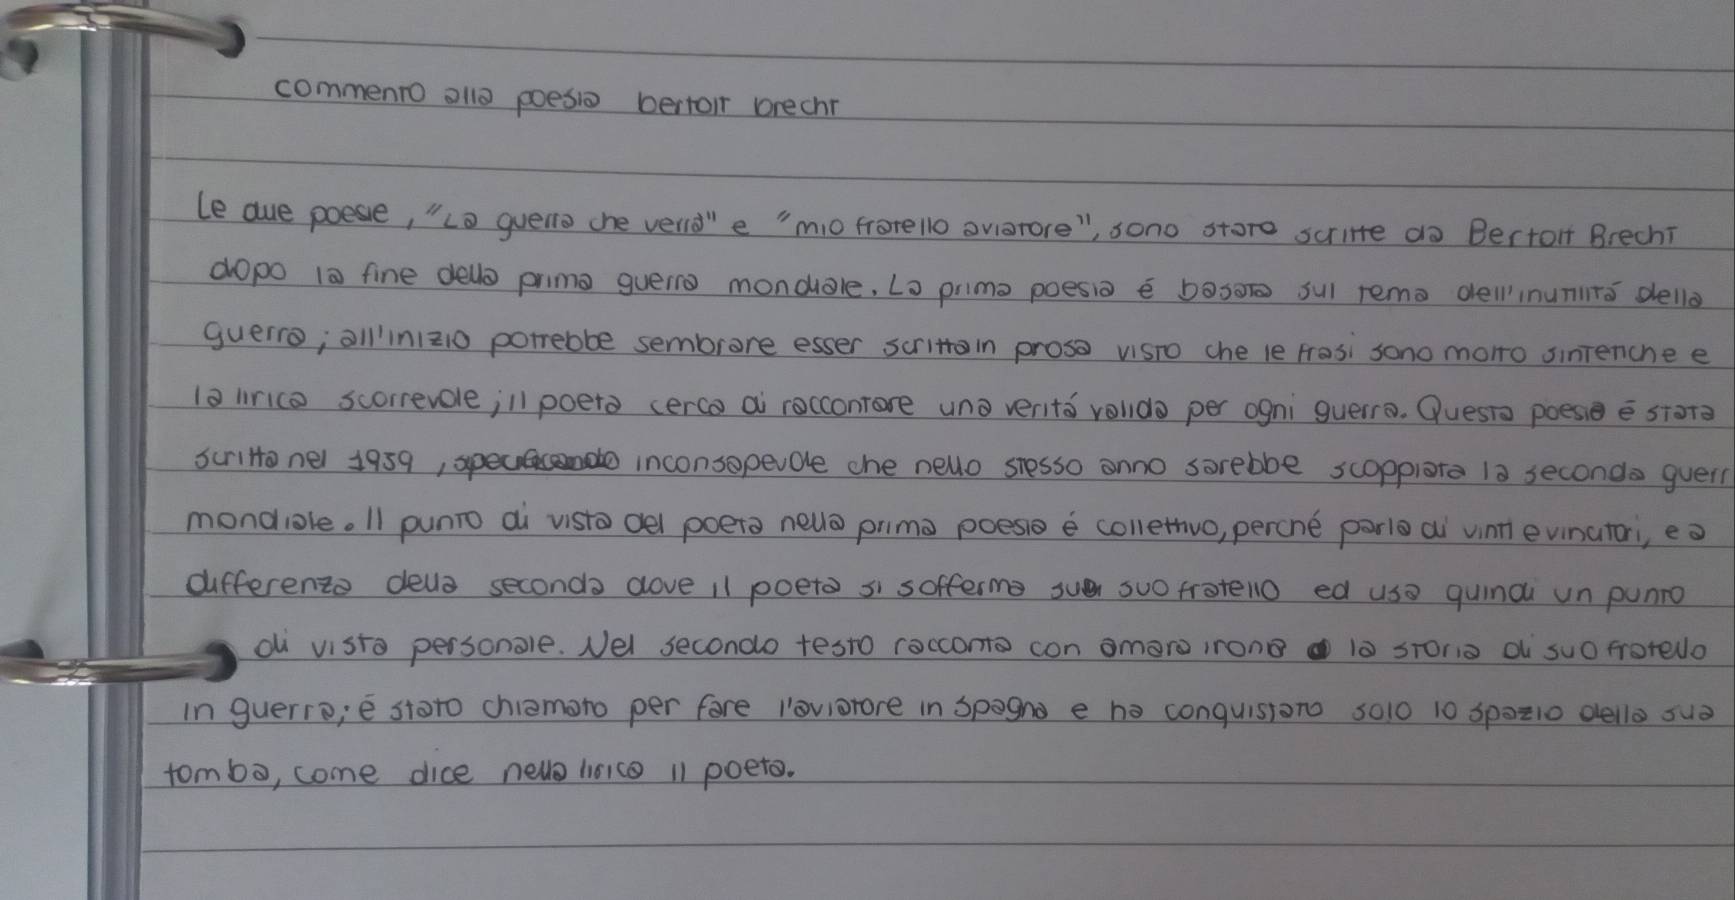 commento alla poesia bertolt brecht
Le due poesie, "La guerra che verrà" e "mio fratello aviatore", sono state scritte da Bertolt Brecht
dopo la fine della prima guerra mondiale. La prima poesia é basata sul tema dell'inutilità della
guerra; all'inizio potrebbe sembrare esser scritta in prosa visto che le frasi sono molto sintetiche e
la lirica scorrevole; il poeta cerca di raccontare una verità valida per ogni guerra. Questa poesia é stata
scritta nel 1939, inconsapevole che nello stesso anno sarebbe scoppiata la seconda guerr
mondiale. Il punto di vista del poeta nella prima poesia é collettivo, perché parla di vinti e vincitori, e a
differenza della seconda dove il poeta si sofferma suo fratello ed usa quindi un punto
di vista personale. Nel secondo testo racconta con amara ironia la storia di suo fratello
in guerra; é stato chiamato per fare l'aviatore in spagna e ha conquistato solo lo spazio della sua
tomba, come dice nella lirica il poeta.